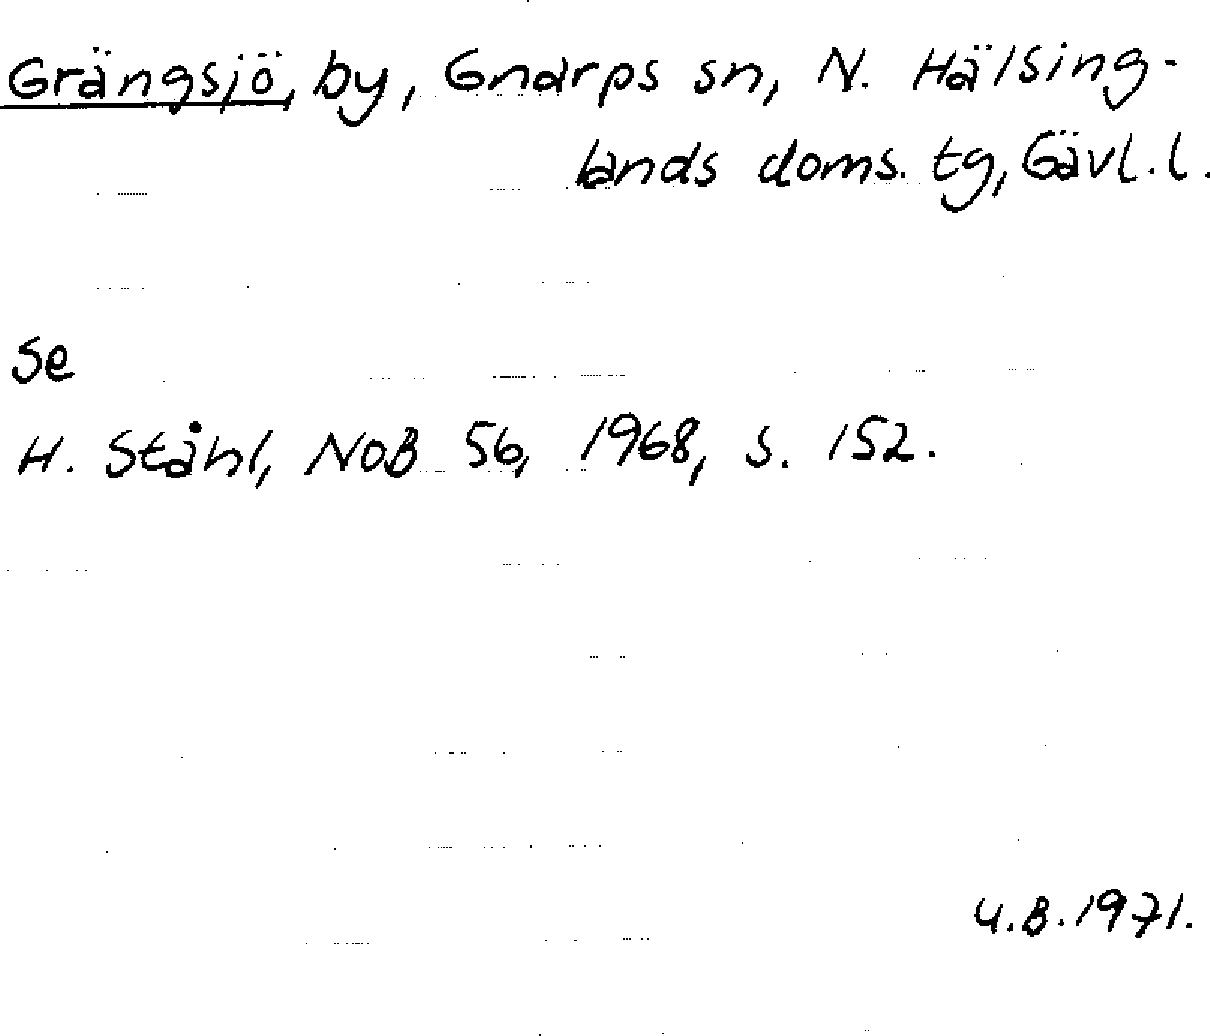 Grängsjö, by, Gnarps sn, N. Hälsing-
lands doms. tg, Gävl. l.
Se
H. Ståhl, NoB 56, 1968, s. 152.
U.B. 1971.